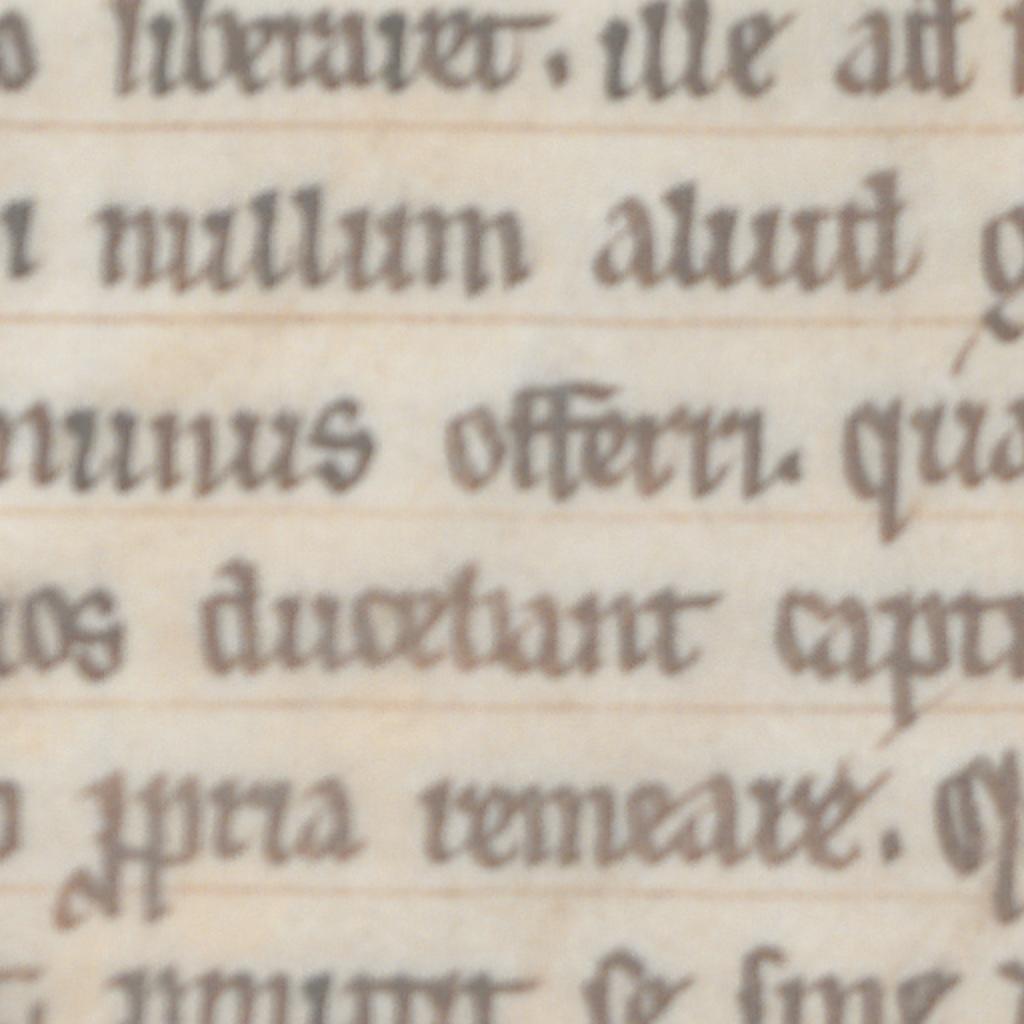 liberaret. ille aut
nullum aliud
munus offerri. qua
uos ducebant capti
ppria remeare. Q
se sine